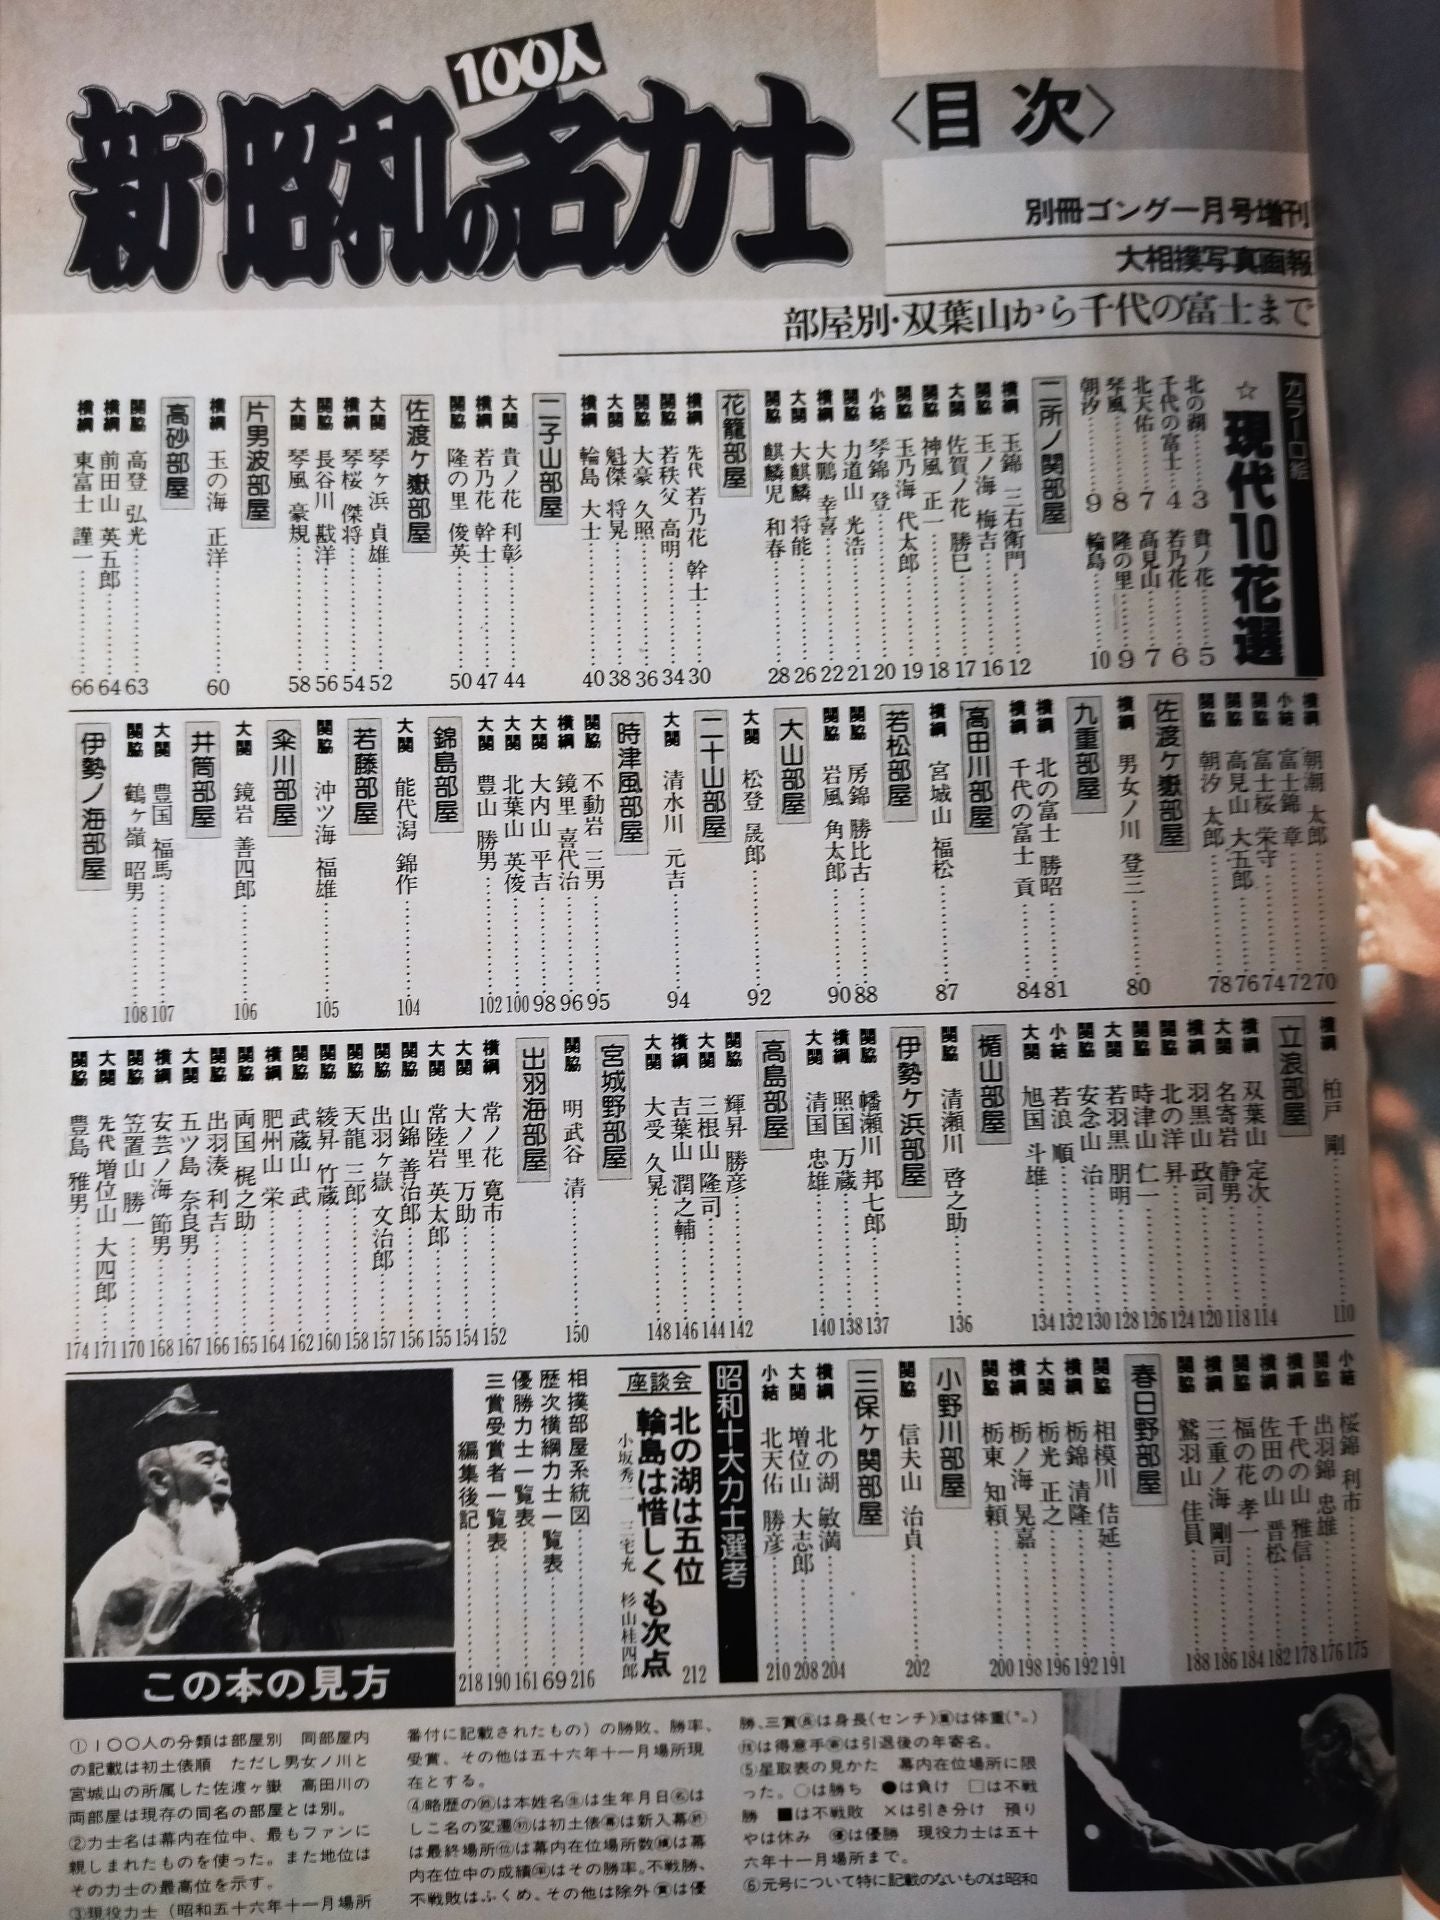 新・昭和の名力士
100人
〈目次〉
別冊ゴング一月号増刊
大相撲写真画報
部屋別・双葉山から千代の富士まで
カラー口絵
☆現代10花選
北の湖……3
千代の富士……4
北天佑……7
琴風……8
朝汐……9
貴ノ花……5
若乃花……6
高見山……7
隆の里……9
輪島……10
二所ノ関部屋
横綱 玉錦 三右衛門……12
関脇 玉ノ海 梅吉……16
大関 佐賀ノ花 勝巳……17
関脇 神風 正一……18
関脇 玉乃海 代太郎……19
小結 琴錦 登……20
関脇 力道山 光浩……21
横綱 大鵬 幸喜……22
大関 大麒麟 将能……26
関脇 麒麟児 和春……28
花籠部屋
横綱 先代 若乃花 幹士……30
関脇 若秩父 高明……34
関脇 大豪 久照……36
大関 魁傑 将晃……38
横綱 輪島 大士……40
二子山部屋
大関 貴ノ花 利彰……44
横綱 若乃花 幹士……47
関脇 隆の里 俊英……50
佐渡ケ嶽部屋
大関 琴ヶ浜 貞雄……52
横綱 琴桜 傑将……54
関脇 長谷川 戡洋……56
大関 琴風 豪規……58
片男波部屋
横綱 玉の海 正洋……60
高砂部屋
関脇 高登 弘光……63
横綱 前田山 英五郎……64
横綱 東富士 謹一……66
横綱 朝潮 太郎……70
小結 富士錦 章……72
関脇 富士桜 栄守……74
関脇 高見山 大五郎……76
関脇 朝汐 太郎……78
佐渡ケ嶽部屋
横綱 男女ノ川 登三……80
九重部屋
横綱 北の富士 勝昭……81
横綱 千代の富士 貢……84
高田川部屋
横綱 宮城山 福松……87
若松部屋
関脇 房錦 勝比古……88
関脇 岩風 角太郎……90
大山部屋
大関 松登 晟郎……92
二十山部屋
大関 清水川 元吉……94
時津風部屋
関脇 不動岩 三男……95
横綱 鏡里 喜代治……96
大関 大内山 平吉……98
大関 北葉山 英俊……100
大関 豊山 勝男……102
錦島部屋
大関 能代潟 錦作……104
若藤部屋
関脇 沖ツ海 福雄……105
粂川部屋
大関 鏡岩 善四郎……106
井筒部屋
大関 豊国 福馬……107
関脇 鶴ヶ嶺 昭男……108
伊勢ノ海部屋
横綱 柏戸 剛……110
立浪部屋
横綱 双葉山 定次……114
大関 名寄岩 静男……118
横綱 羽黒山 政司……120
関脇 北の洋 昇……124
関脇 時津山 仁一……126
関脇 若羽黒 朋明……128
関脇 安念山 治……130
小結 若浪 順……132
大関 旭国 斗雄……134
楯山部屋
関脇 清瀬川 啓之助……136
伊勢ケ浜部屋
関脇 幡瀬川 邦七郎……137
横綱 照国 万蔵……138
大関 清国 忠雄……140
高島部屋
関脇 輝昇 勝彦……142
大関 三根山 隆司……144
横綱 吉葉山 潤之輔……146
大関 大受 久晃……148
宮城野部屋
関脇 明武谷 清……150
出羽海部屋
横綱 常ノ花 寛市……152
大関 大ノ里 万助……154
大関 常陸岩 英太郎……155
関脇 山錦 善治郎……156
関脇 出羽ヶ嶽 文治郎……157
関脇 天龍 三郎……158
関脇 綾昇 竹蔵……160
横綱 武蔵山 武……162
関脇 肥州山 栄……164
関脇 両国 梶之助……165
関脇 出羽湊 利吉……166
大関 五ツ島 奈良男……167
横綱 安芸ノ海 節男……168
関脇 笠置山 勝一……170
大関 先代 増位山 大四郎……171
関脇 豊島 雅男……174
小結 桜錦 利市……175
関脇 出羽錦 忠雄……176
横綱 千代の山 雅信……178
横綱 佐田の山 晋松……182
関脇 福の花 孝一……184
横綱 三重ノ海 剛司……186
関脇 鷲羽山 佳員……188
春日野部屋
関脇 相模川 佶延……191
横綱 栃錦 清隆……192
大関 栃光 正之……196
横綱 栃ノ海 晃嘉……198
関脇 栃東 知頼……200
小野川部屋
関脇 信夫山 治貞……202
三保ケ関部屋
横綱 北の湖 敏満……204
大関 増位山 大志郎……208
小結 北天佑 勝彦……210
昭和十大力士選考
座談会
北の湖は五位
輪島は惜しくも次点
小坂秀二 三宅充 杉山桂四郎
212
相撲部屋系統図……216
歴次横綱力士一覧表……69
優勝力士一覧表……161
三賞受賞者一覧表……190
編集後記……218
この本の見方
①100人の分類は部屋別 同部屋内
の記載は初土俵順 ただし男女ノ川と
宮城山の所属した佐渡ヶ嶽 高田川の
両部屋は現存の同名の部屋とは別。
②力士名は幕内在位中、最もファンに
親しまれたものを使った。また地位は
その力士の最高位を示す。
③現役力士(昭和五十六年十一月場所
番付に記載されたもの)の勝敗、勝率、
受賞、その他は五十六年十一月場所現
在とする。
④略歴の㊔は本姓名㊓は生年月日㊔は
しこ名の変遷㊞は初土俵㊟は新入幕㊡
は最終場所㊢は幕内在位場所数㊣は幕
内在位中の成績㊤はその勝率。不戦勝、
不戦敗はふくめ、その他は除外㊥は優
勝、三賞㊦は身長(センチ)㊧は体重(㌔)
㊨は得意手㊩は引退後の年寄名。
⑤星取表の見かた 幕内在位場所に限
った。○は勝ち ●は負け □は不戦
勝 ■は不戦敗 ×は引き分け 預り
やは休み ㊝は優勝 現役力士は五十
六年十一月場所まで。
⑥元号について特に記載のないものは昭和